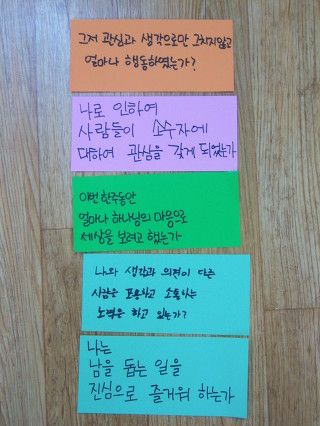 그저 관심과 생각으로만 그치지않고
얼마나 행동하였는가?
나로 인하여
사람들이 소수자에
대하여 관심을 갖게 되었는가
이번 한주동안
얼마나 하나님의 마음으로
세상을 보려고 했는가
나와 생각과 의견이 다른
사람을 포용하고 소통하는
노력을 하고 있는가?
나는
남을 돕는 일을
진심으로 즐거워 하는가